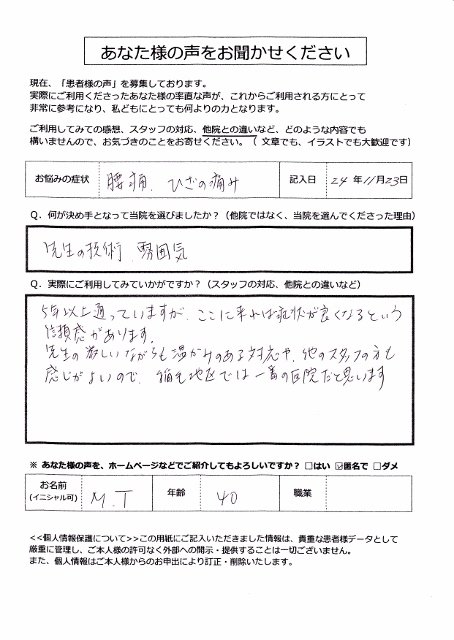 あなた様の声をお聞かせください
現在、「患者様の声」を募集しております。
実際にご利用くださったあなた様の率直な声が、これからご利用される方にとって
非常に参考になり、私どもにとっても何よりの力となります。
ご利用してみての感想、スタッフの対応、他院との違いなど、どのような内容でも
構いませんので、お気づきのことをお寄せください。（文章でも、イラストでも大歓迎です）
お悩みの症状 腰痛 ひざの痛み 記入日 24年11月23日
Q．何が決め手となって当院を選びましたか？（他院ではなく、当院を選んでくださった理由）
先生の技術 雰囲気
Q．実際にご利用してみていかがですか？（スタッフの対応、他院との違いなど）
5年以上通っていますが、ここに来れば症状が良くなるという
信頼感があります。
先生の厳しいながらも温かみのある対応や、他のスタッフの方も
感じがよいので、稲毛地区では一番の医院だと思います
※ あなた様の声を、ホームページなどでご紹介してもよろしいですか？ □はい ☑匿名で □ダメ
お名前 M.T 年齢 40 職業
（イニシャル可）
<<個人情報保護について>>この用紙にご記入いただきました情報は、貴重な患者様データとして
厳重に管理し、ご本人様の許可なく外部への開示・提供することは一切ございません。
また、個人情報はご本人様からのお申出により訂正・削除いたします。